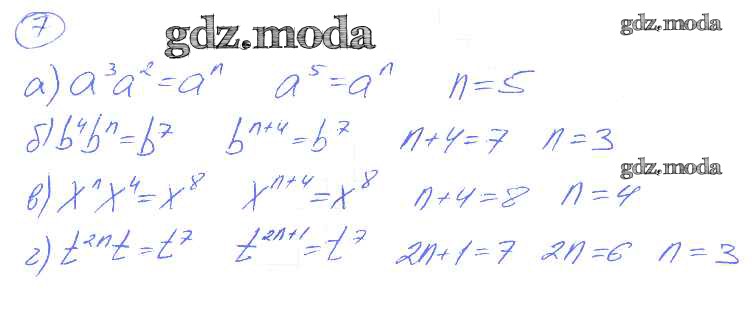 7 gdz.moda gdz.moda
а) a³a²=aⁿ a⁵=aⁿ n=5
б) b⁴bⁿ=b⁷ bⁿ⁺⁴=b⁷ n+4=7 n=3
gdz.moda
в) xⁿx⁴=x⁸ xⁿ⁺⁴=x⁸ n+4=8 n=4
г) t²ⁿt=t⁷ t²ⁿ⁺¹=t⁷ 2n+1=7 2n=6 n=3